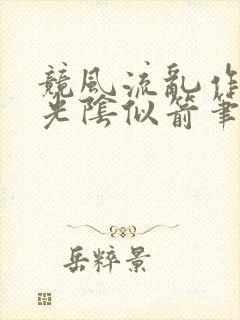 競風流亂作
光陰似箭筆
岳粹景